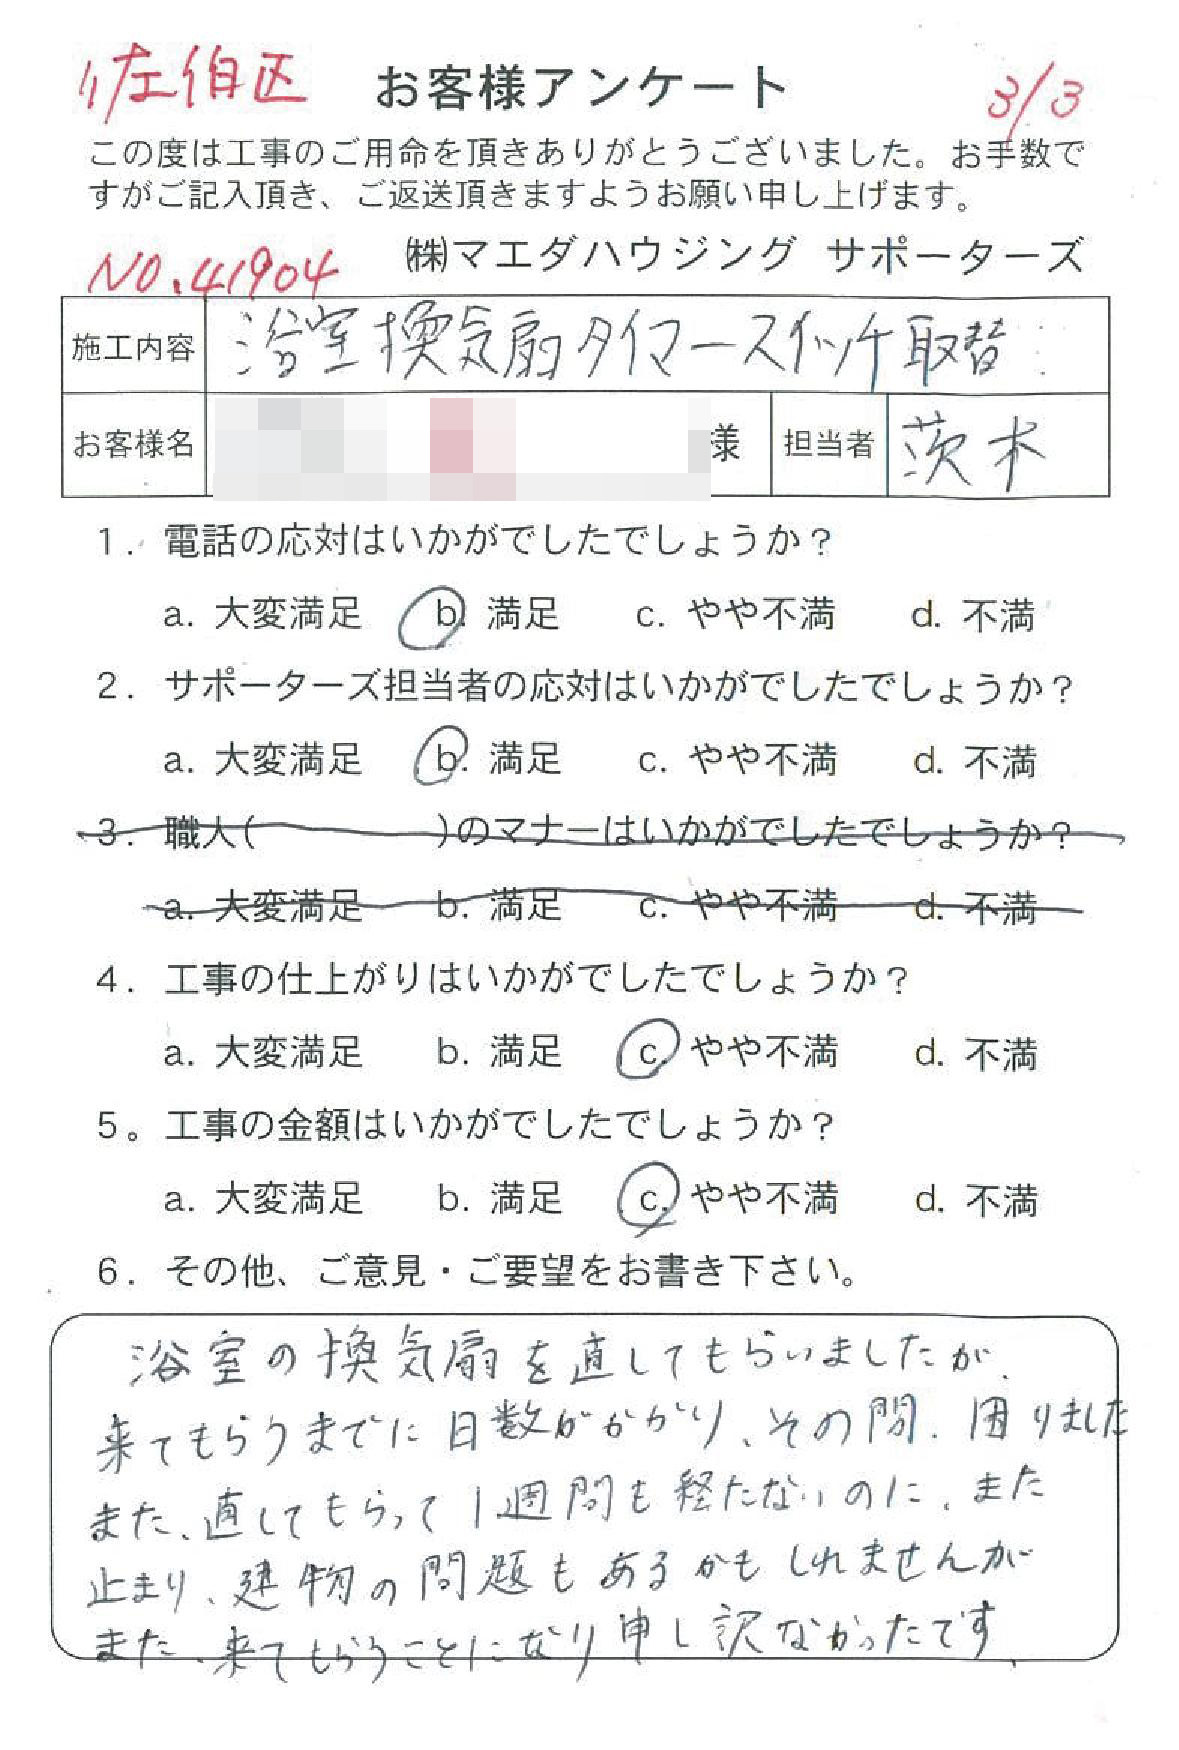 佐伯区 お客様アンケート 3/3
この度は工事のご用命を頂きありがとうございました。お手数で
すがご記入頂き、ご返送頂きますようお願い申し上げます。
NO.41904 ㈱マエダハウジング サポーターズ
施工内容 浴室換気扇タイマースイッチ取替
お客様名 様 担当者 茨木
1. 電話の応対はいかがでしたでしょうか？
a. 大変満足 b. 満足 c. やや不満 d. 不満
2. サポーターズ担当者の応対はいかがでしたでしょうか？
a. 大変満足 b. 満足 c. やや不満 d. 不満
3. 職人( )のマナーはいかがでしたでしょうか？
a. 大変満足 b. 満足 c. やや不満 d. 不満
4. 工事の仕上がりはいかがでしたでしょうか？
a. 大変満足 b. 満足 c. やや不満 d. 不満
5。工事の金額はいかがでしたでしょうか？
a. 大変満足 b. 満足 c. やや不満 d. 不満
6. その他、ご意見・ご要望をお書き下さい。
浴室の換気扇を直してもらいましたが、
来てもらうまでに日数がかかり、その間、困りました
また、直してもらって1週間も経たないのに、また
止まり、建物の問題もあるかもしれませんが
また、来てもらうことになり申し訳なかったです、